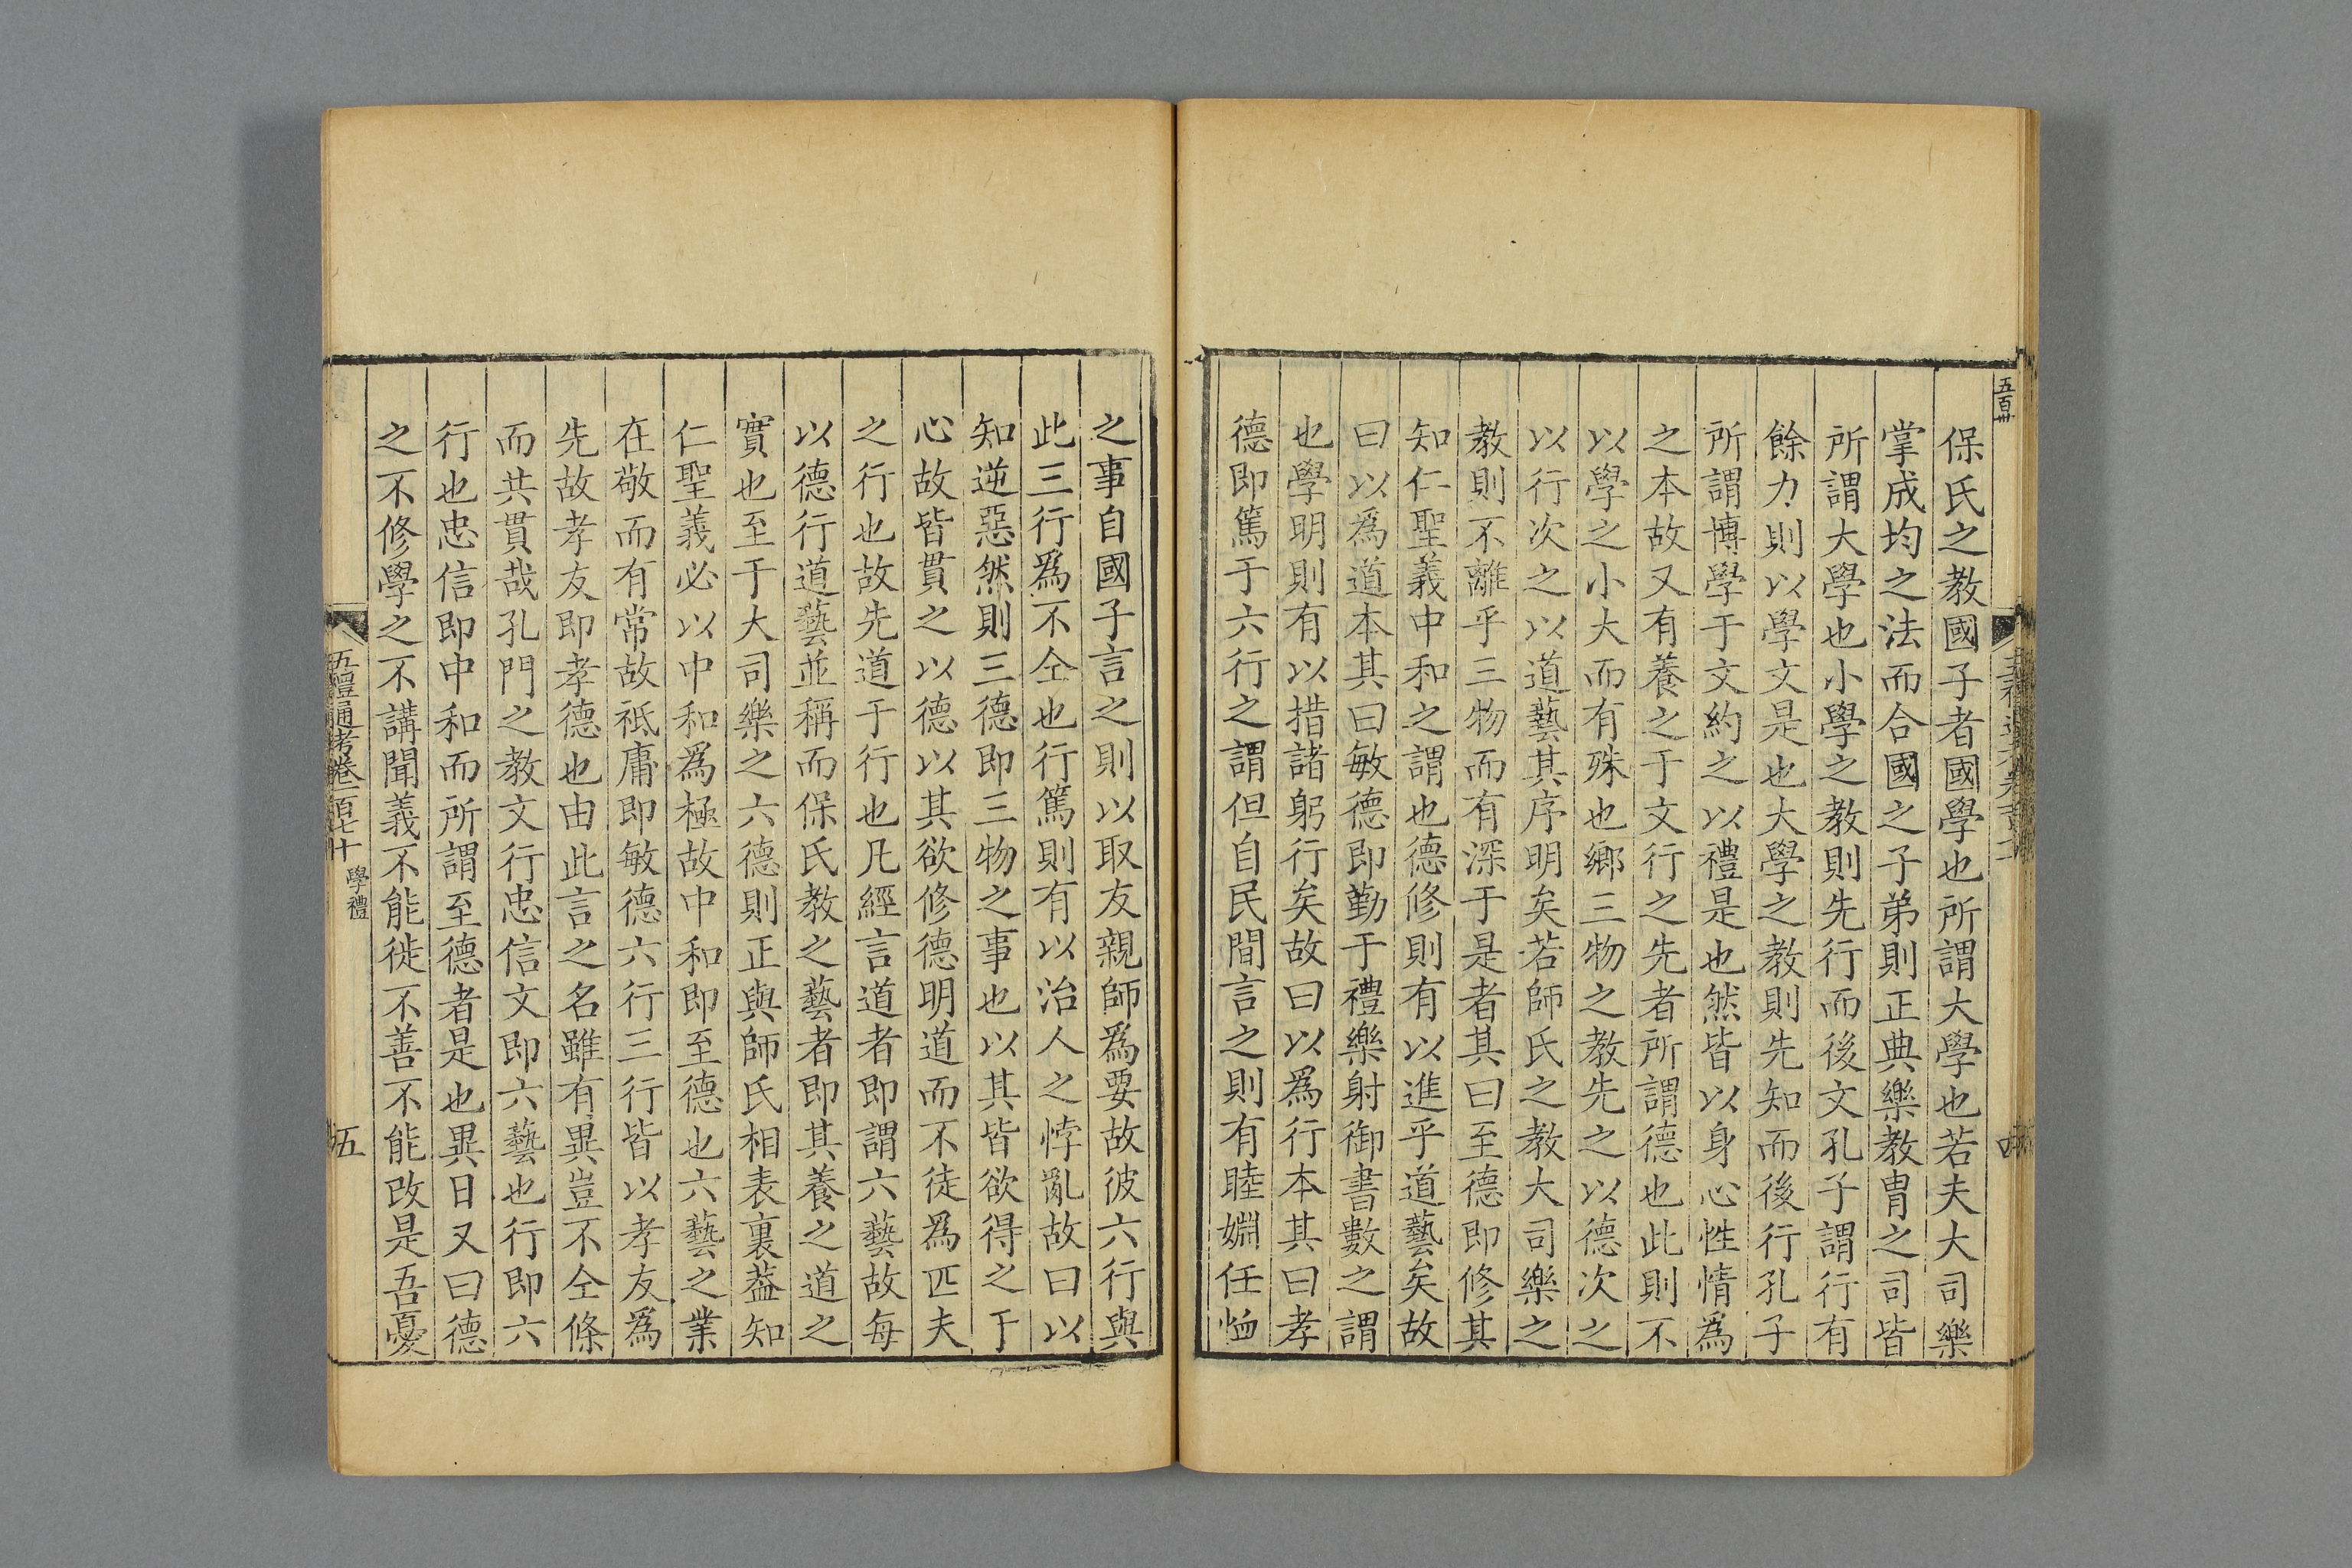 保氏之教國子者國學也所謂大學也若夫大司樂
掌成均之法而合國之子弟則正典樂教胄之司皆
所謂大學也小學之教則先行而後文孔子謂行有
餘力則以學文是也大學之教則先知而後行孔子
所謂博學于文約之以禮是也然皆以身心性情為
之本故又有養之于文行之先者所謂德也此則不
以學之小大而有殊也鄉三物之教先之以德次之
以行次之以道藝其序明矣若師氏之教大司樂之
教則不離乎三物而有深于是者其曰至德即修其
知仁聖義中和之謂也德修則有以進乎道藝矣故
曰以為道本其曰敏德即勤于禮樂射御書數之謂
也學明則有以措諸躬行矣故曰以為行本其曰孝
德即篤于六行之謂但自民間言之則有睦婣任恤
之事自國子言之則以取友親師為要故彼六行與
此三行為不仝也行篤則有以治人之悖亂故曰以
知逆惡然則三德即三物之事也以其皆欲得之于
心故皆貫之以德以其欲修德明道而不徒為匹夫
之行也故先道于行也凡經言道者即謂六藝故每
以德行道藝並稱而保氏教之藝者即其養之道之
實也至于大司樂之六德則正與師氏相表裏葢知
仁聖義必以中和為極故中和即至德也六藝之業
在敬而有常故祗庸即敏德六行三行皆以孝友為
先故孝友即孝德也由此言之名雖有異豈不仝條
而共貫哉孔門之教文行忠信文即六藝也行即六
行也忠信即中和而所謂至德者是也異日又曰德
之不修學之不講聞義不能徙不善不能改是吾憂
五禮通考卷一百七十 學禮
五